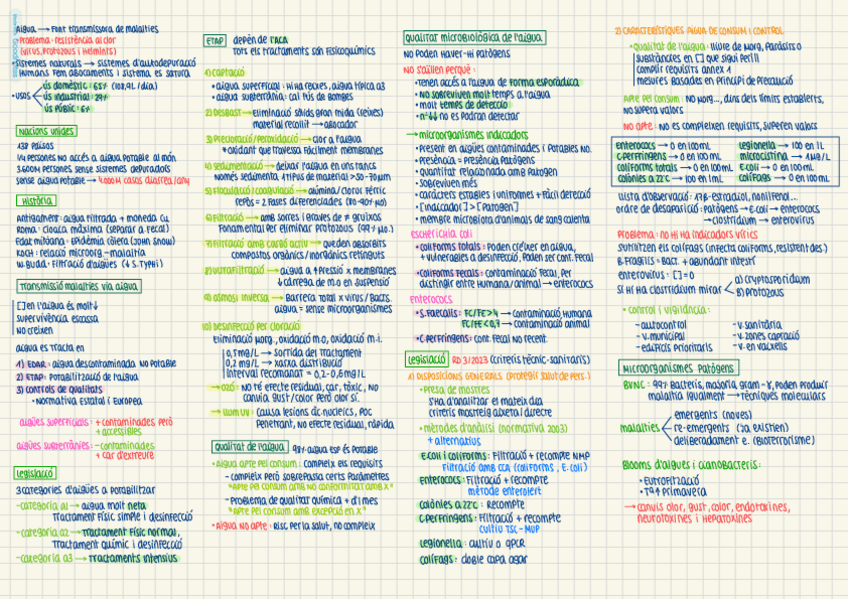 Aigua → Font transmissora de malalties
• Problema: resistència al clor
(virus, protozous i helmints)
• Sistemes naturals → sistemes d'autodepuració
Humans fem abocaments i sistema es satura
• Usos
ús domèstic: 65%
ús industrial: 29%
ús públic: 6%
Nacions unides
138 països
1/4 persones no accés a aigua potable al món
3.600M persones sense sistemes depuradors
sense aigua potable → 4.000M casos diarrea/any
Història
Antigament: aigua filtrada + moneda Cu
Roma: cloaca màxima (separar a. fecal)
Edat mitjana: epidèmia còlera (John Snow)
Koch: relació microorg.-malaltia
W. Budd: filtració d'aigües (↓ S. typhi)
Transmissió malalties via aigua
[] en l'aigua és molt ↓
supervivència escassa
no creixen
aigua es tracta en
1) EDAR: aigua descontaminada no potable
2) ETAP: potabilització de l'aigua
3) controls de qualitats
• Normativa estatal i europea
aigües superficials: + contaminades però
+ accessibles
aigües subterrànies: - contaminades
+ car d'extreure
Legislació
3 categories d'aigües a potabilitzar
- categoria A1 → aigua molt neta
tractament físic simple i desinfecció
- categoria A2 → tractament físic normal,
tractament químic i desinfecció
- categoria A3 → tractaments intensius
ETAP
depèn de l'ACA
Tots els tractaments són fisicoquímics
1) Captació
• aigua superficial: hi ha reixes, aigua típica A3
• aigua subterrània: cal l'ús de bombes
2) Desbast → Eliminació sòlids gran mida (reixes)
material recollit → abocador
3) Precloració/peroxidació → clor a l'aigua
+ oxidant que travessa fàcilment membranes
4) Sedimentació → deixar l'aigua en uns tancs
només sedimenta 1 tipus de material >50-70µm
5) Floculació/coagulació → alúmina/clorur fèrric
repòs = 2 fases diferenciades
6) Filtració → amb sorres i graves de ≠ gruixos
Fonamental per eliminar protozous
7) Filtració amb carbó actiu → queden absorbits
compostos orgànics/inorgànics retinguts
8) Ultrafiltració → aigua a ↑ pressió x membranes
↓ càrrega de m.o en suspensió
9) Osmosi inversa → Barrera total x virus/bacts.
aigua = sense microorganismes
10) Desinfecció per cloració
Eliminació microorg, oxidació m.o, oxidació m.i.
0,5mg/L → sortida del tractament
0,2 mg/L → xarxa distribució
Interval recomanat = 0,2-0,6mg/L
→ Ozó: no té efecte residual, car, tòxic, no
canvia gust/color però olor sí.
→ Llum UV: causa lesions àc nucleics, poc
penetrant, no efecte residual, ràpida
Qualitat de l'aigua
99% aigua ESP és potable
• Aigua apte pel consum: compleix els requisits
- compleix però sobrepassa certs paràmetres
"Apte pel consum amb no conformitat amb x"
- Problema de qualitat química + d'1 mes
"Apte pel consum amb excepció en x"
• Aigua no apte: Risc per la salut, no compleix
Qualitat microbiològica de l'aigua
No poden haver-hi patògens
No s'aïllen perquè:
• tenen accés a l'aigua de forma esporàdica
• no sobreviuen molt temps a l'aigua
• molt temps de detecció
• nº ↓↓ no es podran detectar
→ microorganismes indicadors
• Present en aigües contaminades i potables no.
• presència = presència patògens
• quantitat relacionada amb patogen
• sobreviuen més
• caràcters estables i uniformes + fàcil detecció
• [indicador] > [patogen]
• membre microbiota d'animals de sang calenta
Escherichia coli
• coliforms totals: poden créixer en aigua,
+ vulnerables a desinfecció, poden ser cont. fecal
• coliforms fecals: contaminació fecal, per
distingir entre humana/animal → enterococs
enterococs
• S. faecalis: FC/FE>4 → contaminació humana
FC/FE<0,7 → contaminació animal
• C. perfringens: cont. fecal no recent.
Legislació RD 3/2023 (criteris tècnic-sanitaris)
1) Disposicions generals (protegir salut de pers.)
• Presa de mostres
S'ha d'analitzar el mateix dia
criteris mostreig abertu/directe
• mètodes d'anàlisi (normativa 2003)
+ alternatius
E.coli i coliforms: Filtració + recompte NMP
Filtració amb CCA (coliforms, E.coli)
Enterococs: Filtració + recompte
mètode enterolert
Colònies a 22ºC: recompte
C. perfringens: Filtració + recompte
cultiu TSC-MUP
Legionella: cultiu o qPCR
Colífags: doble capa agar
2) Característiques aigua de consum i control
• qualitat de l'aigua: lliure de microorg, paràsits o
substàncies en [] que sigui perill
complir requisits annex 1
mesures basades en principi de precaució
Apte pel consum: no microorg..., dins dels límits establerts,
no supera valors
No apte: no es compleixen requisits, superen valors
enterococs → 0 en 100mL
C. perfringens → 0 en 100 mL
coliforms totals → 0 en 100mL
colònies a 22ºC → 100 en 1mL
Legionella → 100 en 1L
microcistina → 1µg/L
E. coli → 0 en 100 mL
colífags → 0 en 100mL
llista d'observació: 17β-estradiol, nonilfenol...
ordre de desaparició: patògens → E.coli → enterococs
→ clostridium → enterovirus
Problema: no hi ha indicadors vírics
S'utilitzen els colífags (infecta coliforms, resistent des.)
B. fragilis = bact. + abundant intestí
enterovirus: [] = 0
Si hi ha clostridium mirar
a) cryptosporidium
b) protozous
• control i vigilància:
- autocontrol
- v. municipal
- edificis prioritaris
- v. sanitària
- v. zones captació
- v. en vaixells
Microorganismes patògens
BVNC: 99% bacteris, majoria gram -, poden produir
malaltia igualment → tècniques moleculars
malalties
emergents (noves)
re-emergents (ja existien)
deliberadament e. (bioterrorisme)
Blooms d'algues i cianobacteris:
• Eutrofització
• Tª↑ primavera
→ canvis olor, gust, color, endotoxines,
neurotoxines i hepatoxines